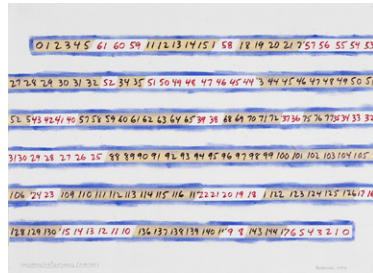 0 1 2 3 4 5 61 60 59 11 12 13 14 15 1 58 18 19 20 21 7 57 56 55 54 53
27 28 29 30 31 32 52 34 35 51 50 49 48 47 46 45 44 3 44 45 46 47 48 49 50 5
52 5 43 42 41 40 57 58 59 60 61 62 63 64 65 39 38 68 69 70 71 72 37 36 75 76 77 35 34 33 32
31 30 29 28 27 26 25 88 89 90 91 92 93 94 95 96 97 98 99 100 101 102 103 104 105
106 24 23 109 110 111 112 113 114 115 116 11 22 21 20 19 18 122 123 124 125 126 17 16
128 129 130 15 14 13 12 11 10 136 137 138 139 140 1 9 8 143 144 1 7 6 5 4 3 2 1 0